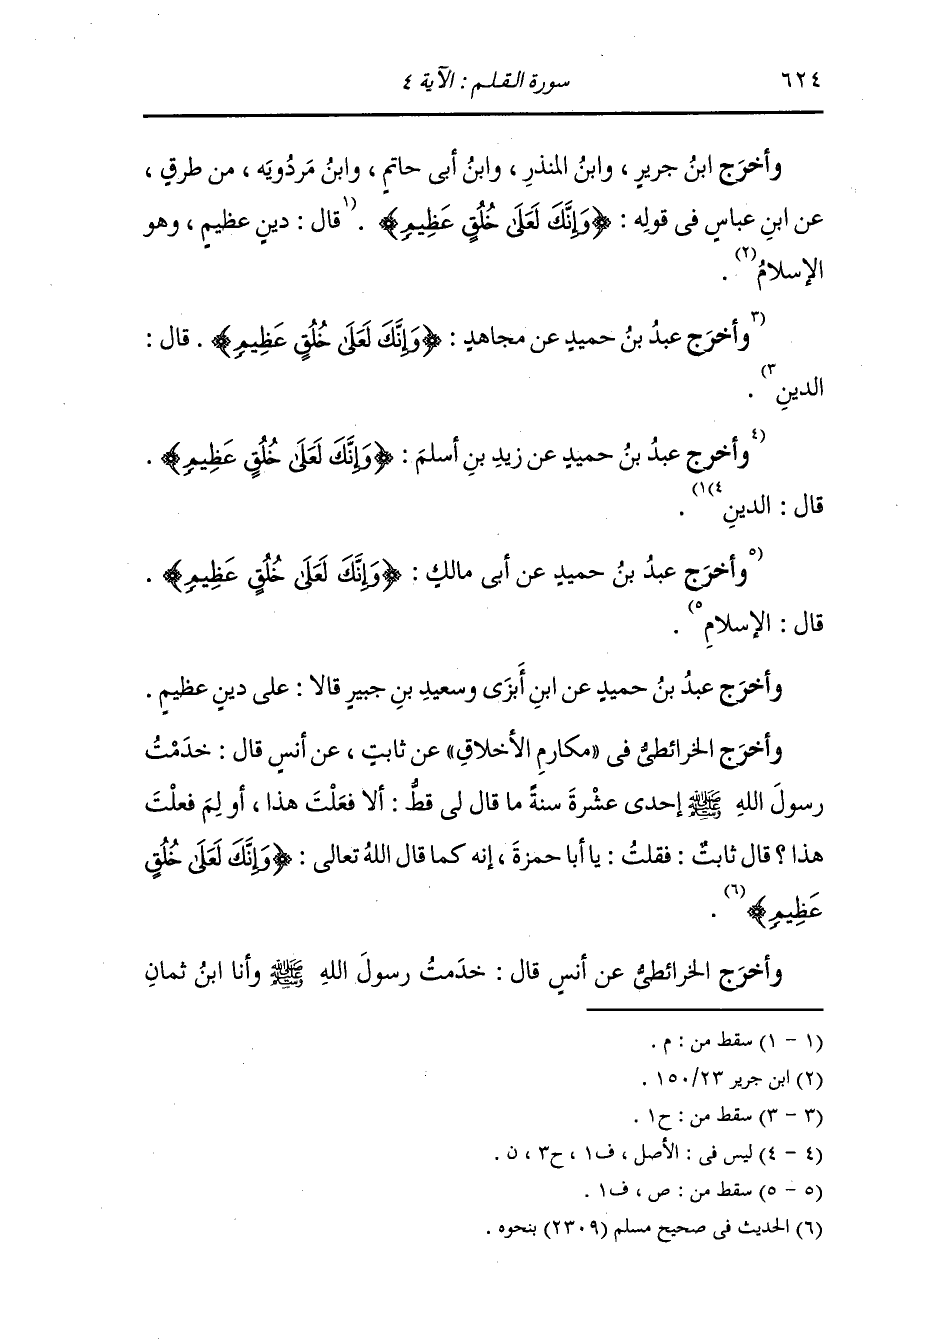 ٦٢٤ سورة القلم : الآية ٤
وأخرَج ابنُ جريرٍ ، وابنُ المنذرِ ، وابنُ أبى حاتمٍ ، وابنُ مَردُويَه ، من طرقٍ ،
عن ابنِ عباسٍ فى قولِه : ﴿وَإِنَّكَ لَعَلَىٰ خُلُقٍ عَظِيمٍ﴾ . (١قال : دينٍ عظيمٍ ، وهو
الإسلامُ(٢) .
(٣وأخرَج عبدُ بنُ حميدٍ عن مجاهدٍ : ﴿وَإِنَّكَ لَعَلَىٰ خُلُقٍ عَظِيمٍ﴾ . قال :
الدينِ٣) .
(٤وأخرج عبدُ بنُ حميدٍ عن زيدِ بنِ أسلمَ : ﴿وَإِنَّكَ لَعَلَىٰ خُلُقٍ عَظِيمٍ﴾ .
قال : الدينِ٤)١) .
(٥وأخرَج عبدُ بنُ حميدٍ عن أبى مالكٍ : ﴿وَإِنَّكَ لَعَلَىٰ خُلُقٍ عَظِيمٍ﴾ .
قال : الإسلامِ٥) .
وأخرَج عبدُ بنُ حميدٍ عن ابنِ أَبزَى وسعيدِ بنِ جبيرٍ قالا : على دينٍ عظيمٍ .
وأخرَج الخرائطىُّ فى «مكارمِ الأخلاقِ» عن ثابتٍ ، عن أنسٍ قال : خدَمْتُ
رسولَ اللهِ ﷺ إحدى عشْرةَ سنةً ما قال لى قطُّ : ألا فعَلْتَ هذا ، أو لِمَ فعلْتَ
هذا ؟ قال ثابتٌ : فقلتُ : يا أبا حمزةَ ، إنه كما قال اللهُ تعالى : ﴿وَإِنَّكَ لَعَلَىٰ خُلُقٍ
عَظِيمٍ﴾(٦) .
وأخرَج الخرائطىُّ عن أنسٍ قال : خدَمتُ رسولَ اللهِ ﷺ وأنا ابنُ ثمانِ
(١ - ١) سقط من : م .
(٢) ابن جرير ٢٣/١٥٠ .
(٣ - ٣) سقط من : ح١ .
(٤ - ٤) ليس فى : الأصل ، ف١ ، ح٣ ، ن .
(٥ - ٥) سقط من : ص ، ف١ .
(٦) الحديث فى صحيح مسلم (٢٣٠٩) بنحوه .